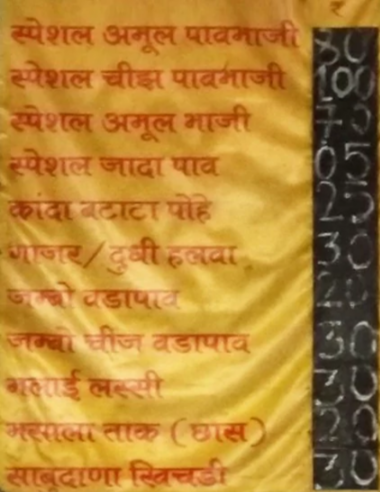 ₹
स्पेशल अमूल पावभाजी 80
स्पेशल चीझ पावभाजी 100
स्पेशल अमूल भाजी 70
स्पेशल जादा पाव 05
कांदा बटाटा पोहे 25
गाजर / दुधी हलवा 30
जम्बो वडापाव 20
जम्बो चीज वडापाव 30
मलाई लस्सी 30
मसाला ताक ( छास ) 20
साबुदाणा खिचडी 30